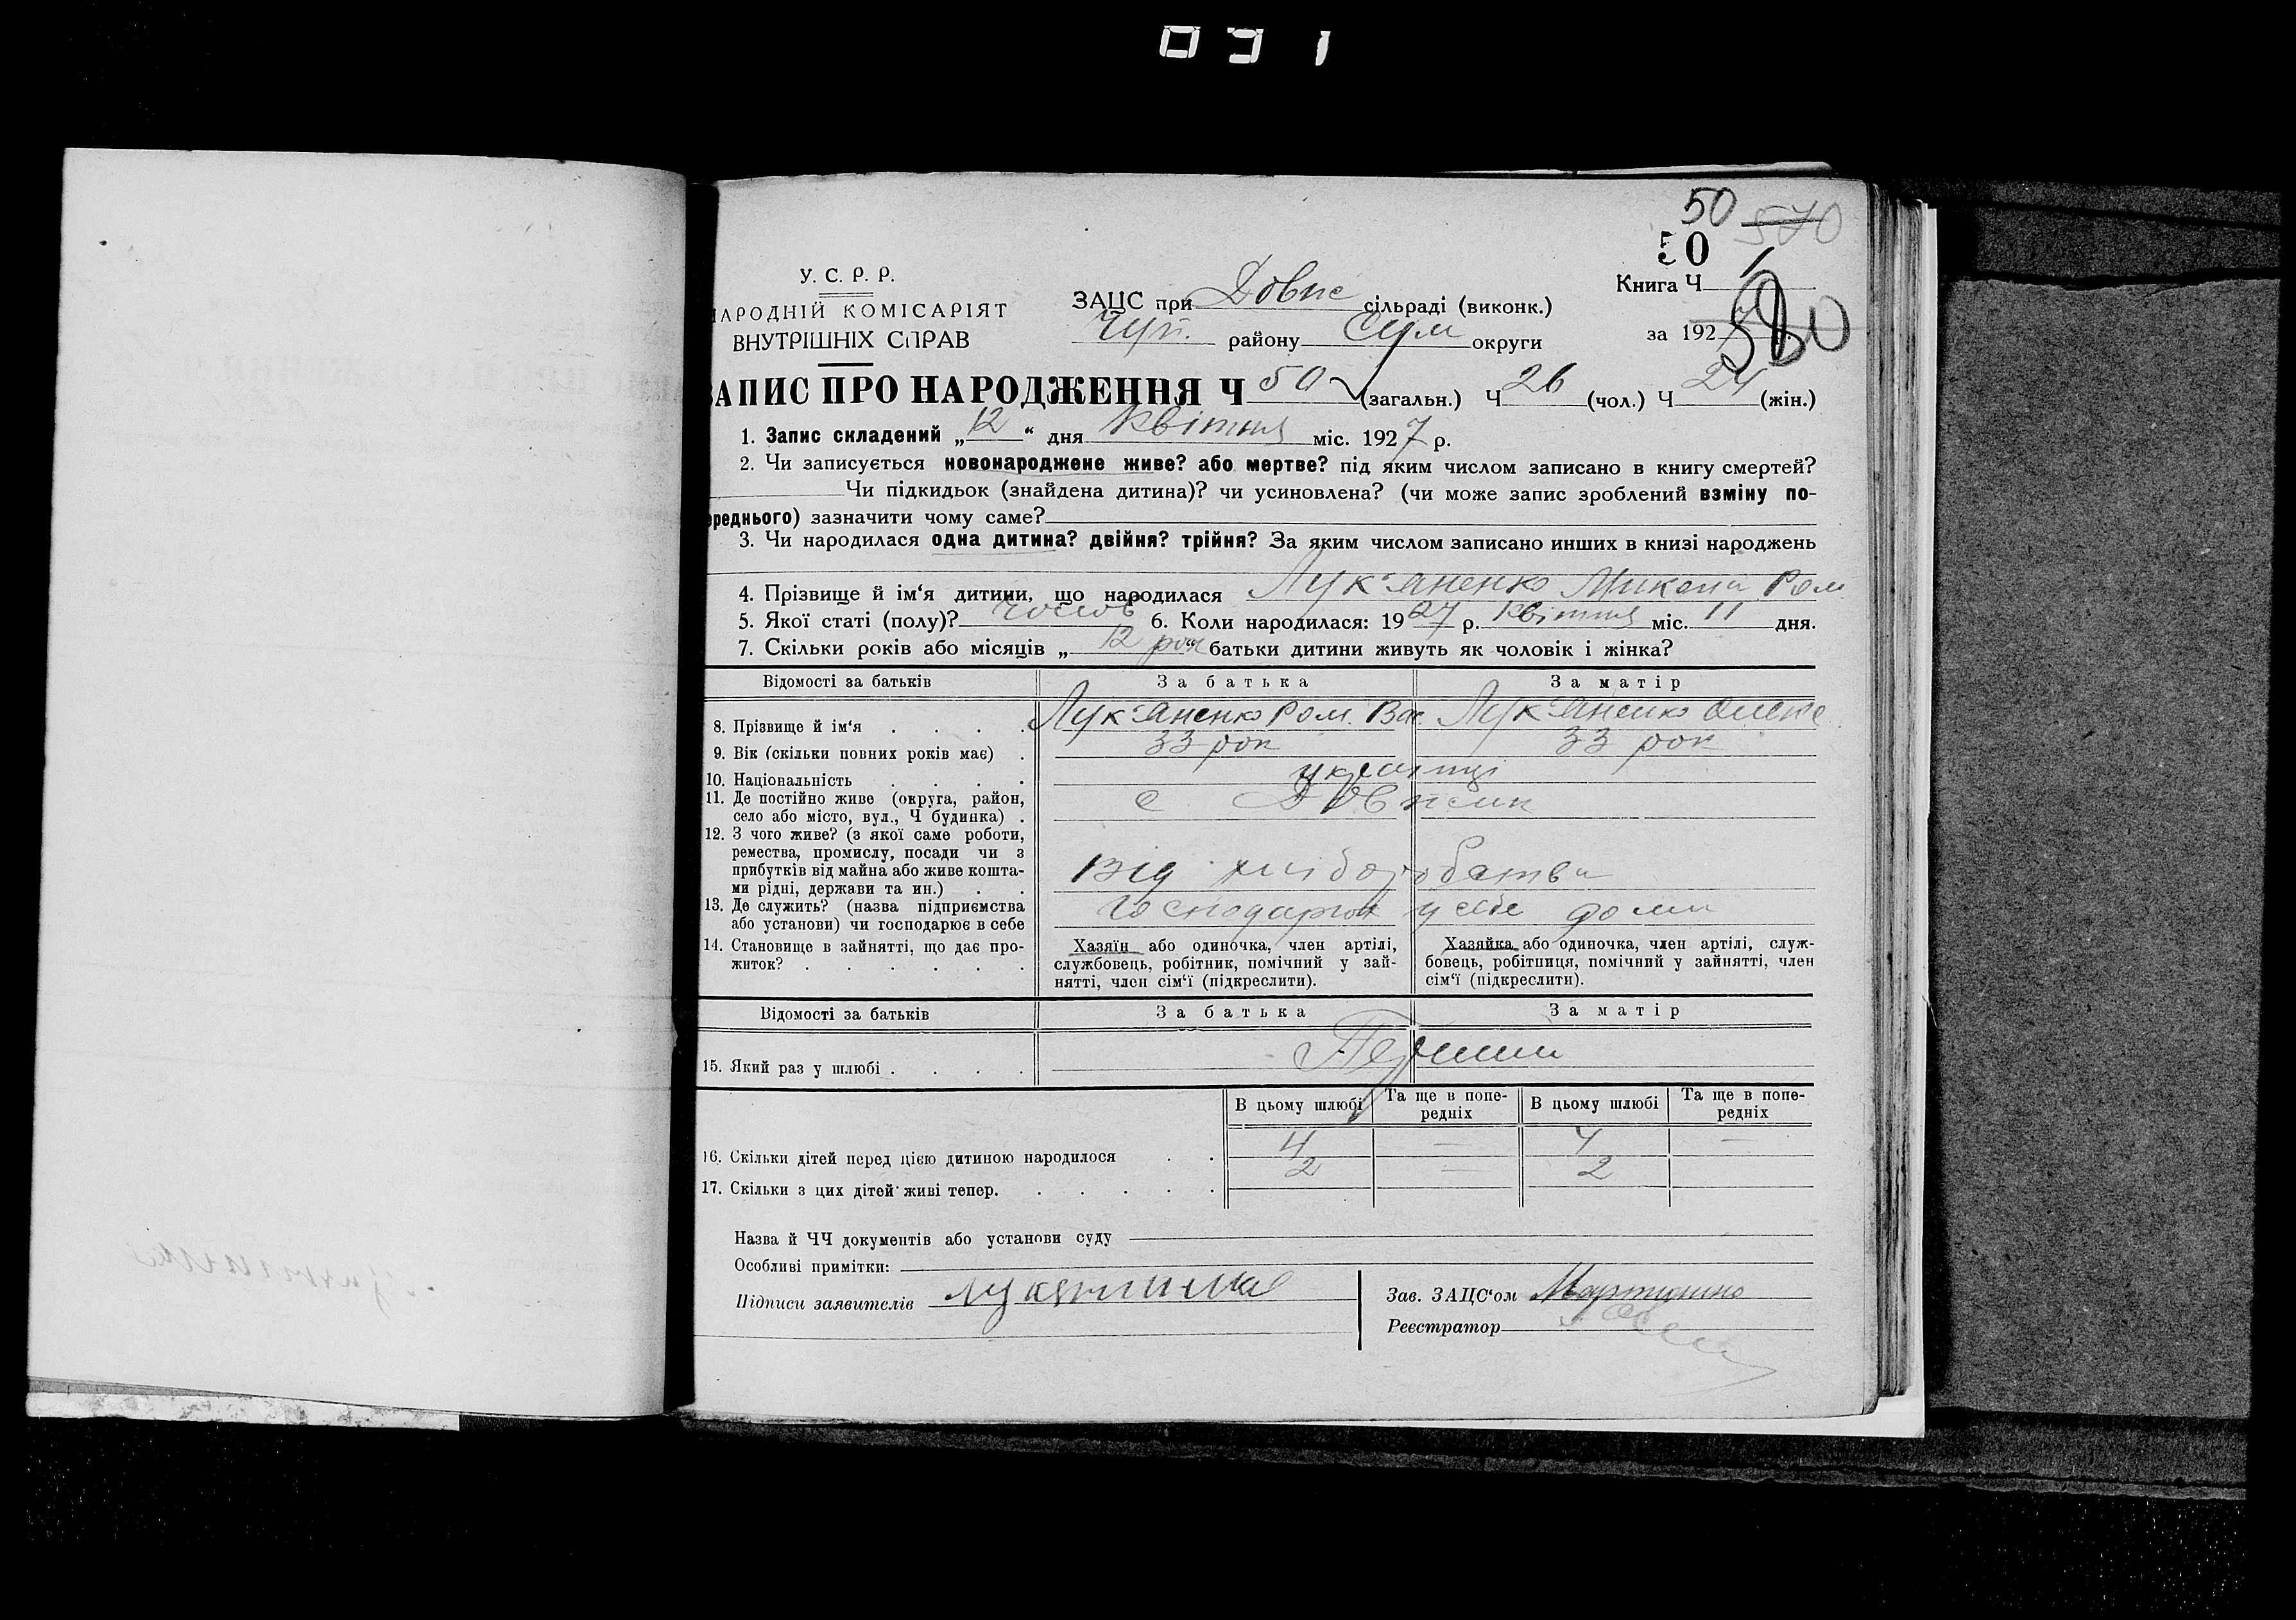 031
50 570
50
У. С. Р. Р.
НАРОДНІЙ КОМІСАРІЯТ
ВНУТРІШНІХ СПРАВ
ЗАЦС при Довпс сільраді (виконк.)
Чуп. району Сум округи
Книга Ч 1
за 1927
580
ЗАПИС ПРО НАРОДЖЕННЯ Ч 50 (загальн.) Ч 26 (чол.) Ч 24 (жін.)
1. Запис складений „12“ дня квітня міс. 1927 р.
2. Чи записується новонароджене живе? або мертве? під яким числом записано в книгу смертей?
Чи підкидьок (знайдена дитина)? чи усиновлена? (чи може запис зроблений взміну по-
ереднього) зазначити чому саме?
3. Чи народилася одна дитина? двійня? трійня? За яким числом записано инших в книзі народжень
4. Прізвище й ім‘я дитини, що народилася Лук‘яненко Микола Ром
5. Якої статі (полу)? чолов 6. Коли народилася: 1927 р. квітня міс. 11 дня.
7. Скільки років або місяців „12 рок“ батьки дитини живуть як чоловік і жінка?
Відомості за батьків За батька За матір
8. Прізвище й ім‘я . . . . Лук‘яненко Ром. Вас Лук‘яненко Олена
9. Вік (скільки повних років має) . 33 рок 33 рок
10. Національність . . . . українці
11. Де постійно живе (округа, район,
село або місто, вул., Ч будинка) . с
12. З чого живе? (з якої саме роботи,
ремества, промислу, посади чи з
прибутків від майна або живе кошта-
ми рідні, держави та ин.) . . від хліборобства
13. Де служить? (назва підприємства
або установи) чи господарює в себе у себе дома
14. Становище в зайнятті, що дає про-
житок? . . . . . .
Хазяїн або одиночка, член артілі,
службовець, робітник, помічний у зай-
нятті, член сім‘ї (підкреслити).
Хазяйка або одиночка, член артілі, служ-
бовець, робітниця, помічний у зайнятті, член
сім‘ї (підкреслити).
Відомості за батьків За батька За матір
15. Який раз у шлюбі . . . . Перший
В цьому шлюбі Та ще в попе-редніх В цьому шлюбі Та ще в попе-редніх
16. Скільки дітей перед цією дитиною народилося . . 4 — 4 —
17. Скільки з цих дітей живі тепер. . . . . . 2 — 2
Назва й ЧЧ документів або установи суду
Особливі примітки:
Підписи заявителів
Зав. ЗАЦС‘ом
Реєстратор